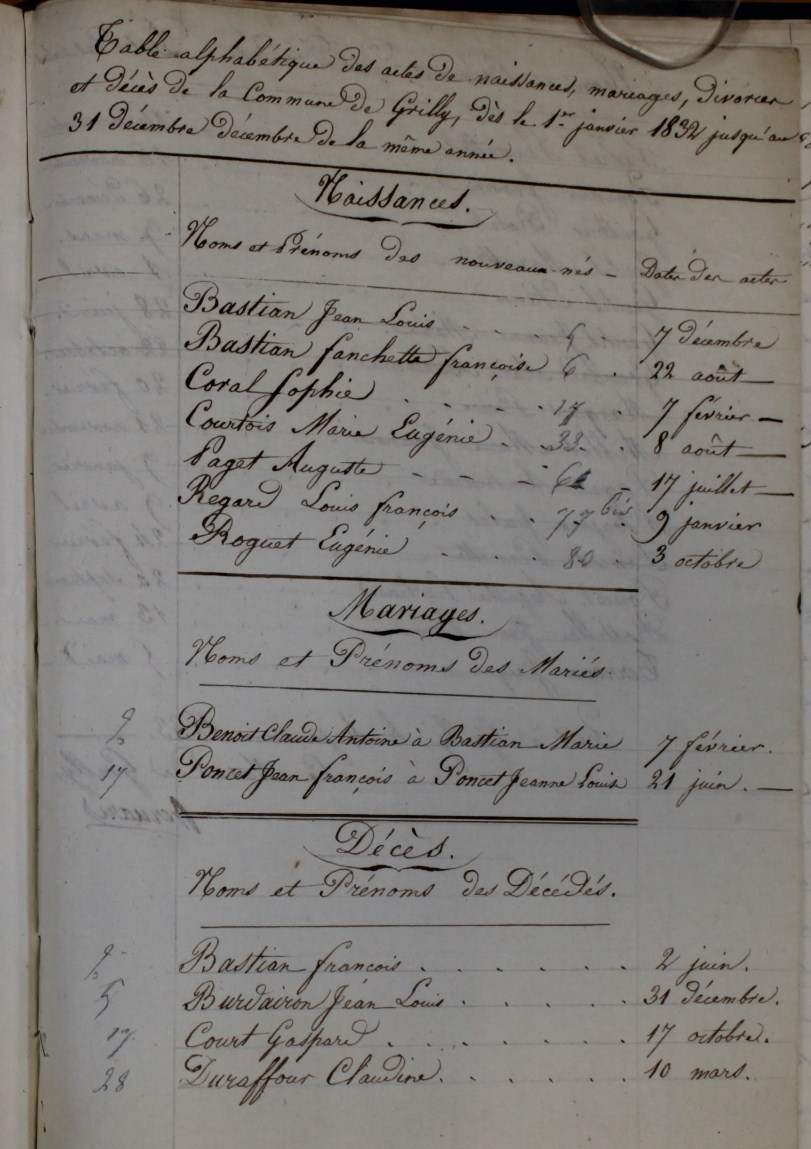 Table alphabétique des actes de naissances, mariages, divorces
et décès de la Commune de Grilly, dès le 1er janvier 1832 jusqu'au
31 décembre décembre de la même année.
Naissances.
Noms et Prénoms des nouveaux-nés – Dates des actes
Bastian Jean Louis . . . 5 . 7 décembre
Bastian fanchette françoise 6 . 22 août —
Coral Sophie . . . . 17 . 7 février —
Courtois Marie Eugénie . 33 . 8 août —
Paget Auguste - - - 61 - 17 juillet —
Regard Louis françois . . 77 bis . 9 janvier
Roguet Eugénie . . . . 80 . 3 octobre
Mariages.
Noms et Prénoms des Mariés.
Benoit Claude Antoine à Bastian Marie 7 février.
17 Poncet Jean françois à Poncet Jeanne Louise 21 juin. —
Décès.
Noms et Prénoms des Décédés.
Bastian francois . . . . . . 2 juin.
5 Burdairon Jean Louis . . . . . 31 décembre.
17. Court Gaspard . . . . . . . 17 octobre.
28 Duraffour Claudine . . . . . . 10 mars.